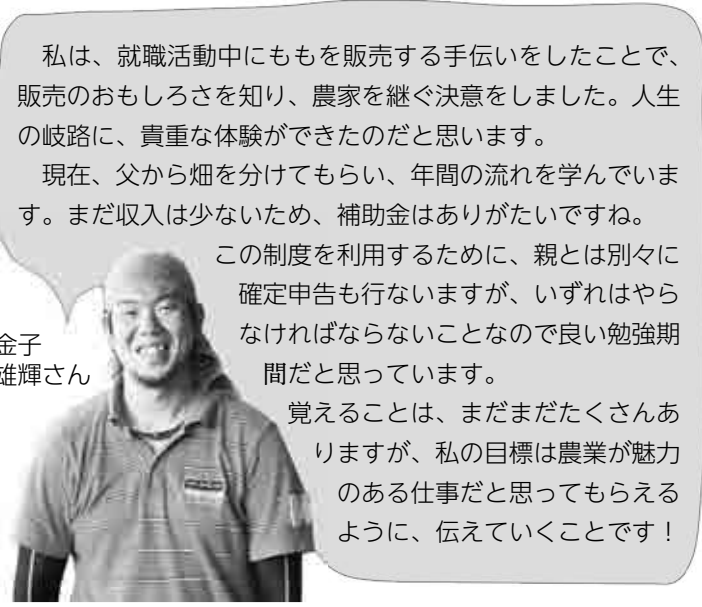 私は、就職活動中にももを販売する手伝いをしたことで、
販売のおもしろさを知り、農家を継ぐ決意をしました。人生
の岐路に、貴重な体験ができたのだと思います。
現在、父から畑を分けてもらい、年間の流れを学んでいま
す。まだ収入は少ないため、補助金はありがたいですね。
この制度を利用するために、親とは別々に
確定申告も行ないますが、いずれはやら
なければならないことなので良い勉強期
間だと思っています。
覚えることは、まだまだたくさんあ
りますが、私の目標は農業が魅力
のある仕事だと思ってもらえる
ように、伝えていくことです！
金子
雄輝さん